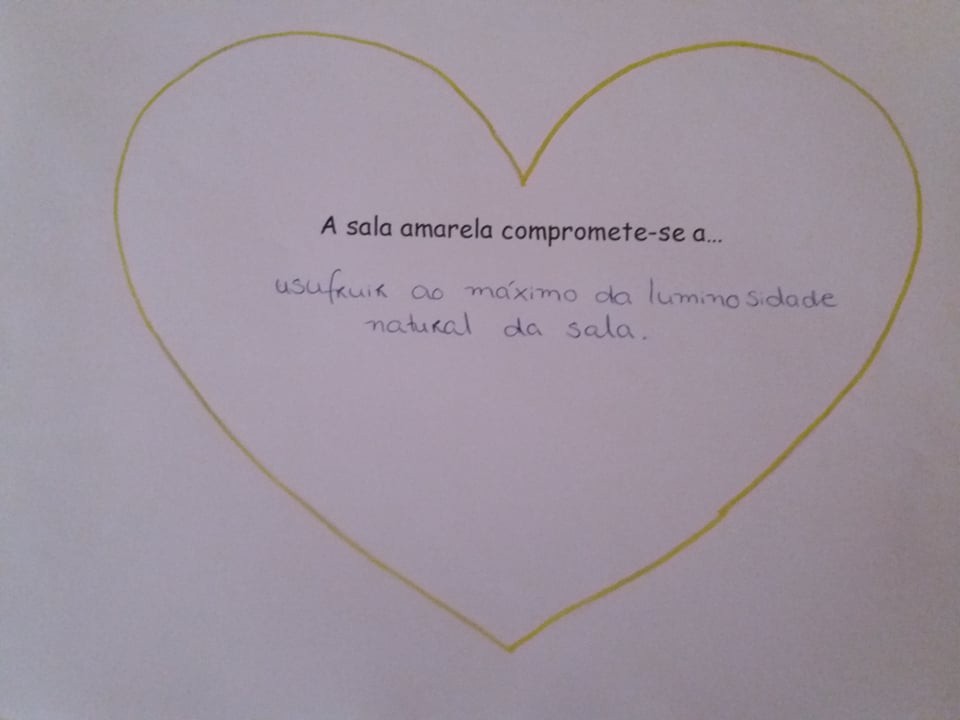 A sala amarela compromete-se a...
usufruir ao máximo da luminosidade
natural da sala.